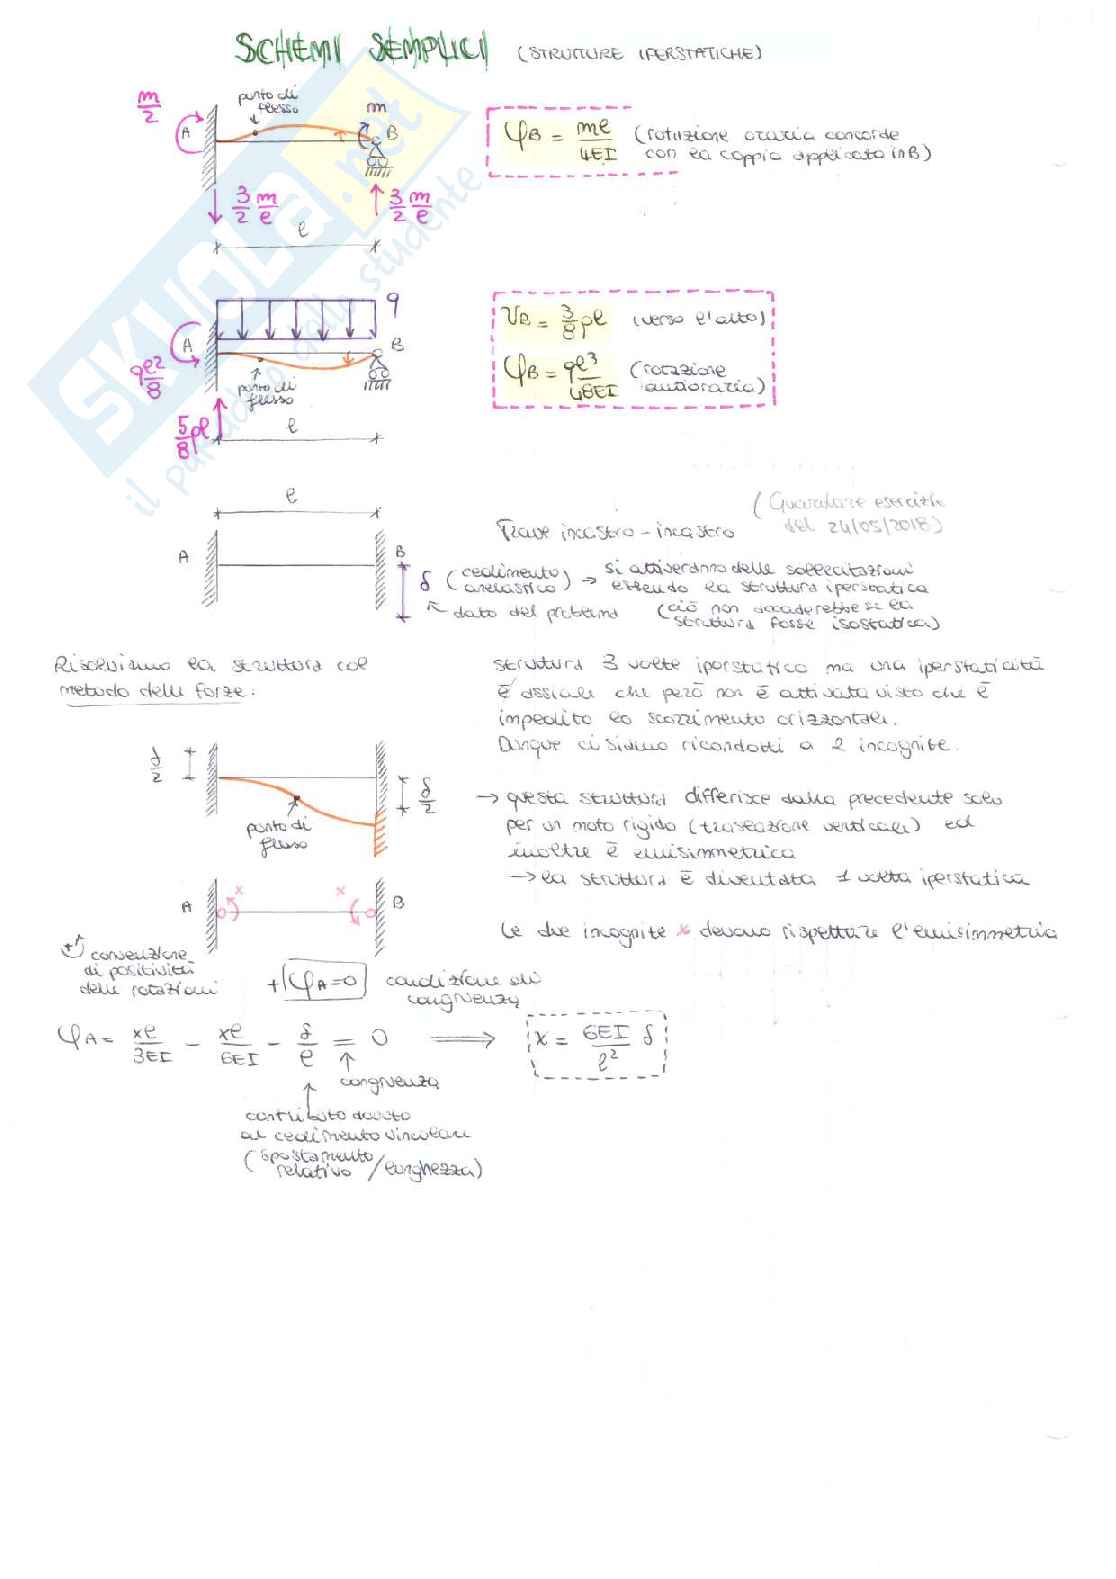 SCHEMI SEMPLICI (STRUTTURE IPERSTATICHE)
m/2
A
punto di
flesso
m
B
3/2 m/l
3/2 m/l
l
φB = ml/4EI (rotazione oraria concorde
con la coppia applicata in B)
q
A
B
ql²/8
punto di
flesso
5/8 pl
l
VB = 3/8 pl (verso l'alto)
φB = ql³/48EI (rotazione
antioraria)
l
A
B
δ (cedimento
anelastico)
dato del problema
Trave incastro-incastro
(Guardare esercizio
del 24/05/2018)
→ si attiveranno delle sollecitazioni
essendo la struttura iperstatica
(ciò non accadrebbe se la
struttura fosse isostatica)
Risolviamo la struttura col
metodo delle forze:
struttura 3 volte iperstatica ma una iperstaticità
è assiale che però non è attivata visto che è
impedito lo scorrimento orizzontale.
Dunque ci siamo ricondotti a 2 incognite.
δ/2
punto di
flesso
δ/2
→ questa struttura differisce dalla precedente solo
per un moto rigido (traslazione verticale) ed
inoltre è emisimmetrica
→ la struttura è diventata 1 volta iperstatica
A
x
x
B
Le due incognite x devono rispettare l'emisimmetria
+ convenzione
di positività
delle rotazioni
+ φA=0 condizione di
congruenza
φA = xl/3EI - xl/6EI - δ/l = 0 ⟹ x = 6EI/l² δ
congruenza
contributo dovuto
al cedimento vincolare
(spostamento
relativo/lunghezza)
SKUOLA.net
il paradiso dello studente